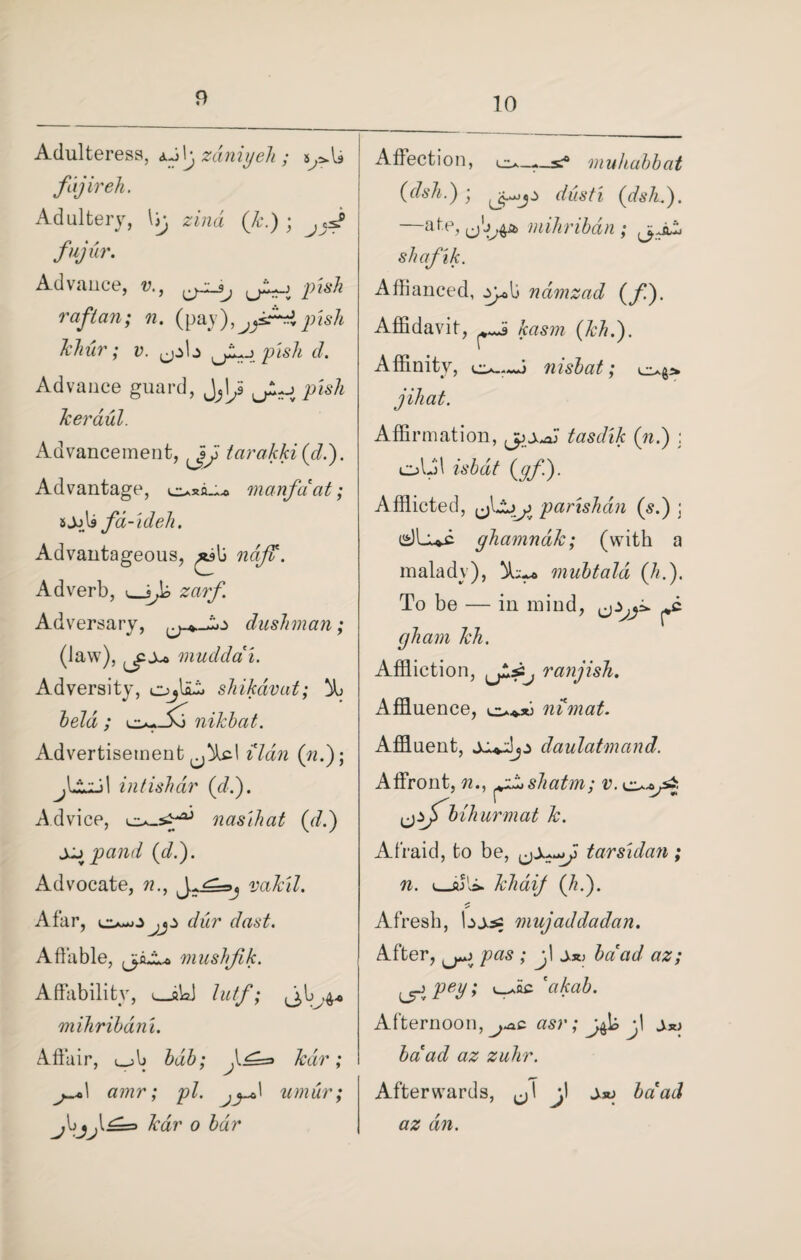 9
Adulteress, زانیه zániyeh ; فاجره
fájireh.
Adultery, زنا ziná (k.) ; فجور
fujúr.
Advance, v., پیش رفتن písh
raftan; n. (pay), پیشخور písh
khúr ; v. پیش دادن písh d.
Advance guard, پیش قراول písh
kerdúl.
Advancement, ترقی tarakki (d.).
Advantage, منفعت manfa'at ;
فایده fá-ideh.
Advantageous, نافع náfi'.
Adverb, ظرف zarf.
Adversary, دشمن dushman ;
(law), مدعی mudda'i.
Adversity, شقاوت shikávat; بلا
belá ; نکبت nikbat.
Advertisement اعلان i'lán (n.);
انتشار intishár (d.).
Advice, نصیحت nasíhat (d.)
پند pand (d.).
Advocate, n., وکیل vakíl.
Afar, دور دست dúr dast.
Affable, مشفق mushfik.
Affability, لطف lutf; مهربانی
mihribání.
Affair, باب báb; کار kár ;
امر amr; pl. امور umúr;
کار و بار kár o bár
10
Affection, محبت muhabbat
(dsh.) ; دوستی dústí (dsh.).
—ate, مهربان mihribán ; شفیق
shafík.
Affianced, نامزد námzad (f.).
Affidavit, قسم kasm (kh.).
Affinity, نسبت nisbat ; جهت
jihat.
Affirmation, تصدیق tasdík (n.) ;
اثبات isbát (gf.).
Afflicted, پریشان paríshán (s.) ;
غمناک ghamnák; (with a
malady), مبتلا mubtalá (h.).
To be — in mind, غم خوردن
gham kh.
Affliction, رنجش ranjish.
Affluence, نعمت ni'mat.
Affluent, دولتمند daulatmand.
Affront, n., شتم shatm ; v. بیحرمت
کردن bíhurmat k.
Afraid, to be, ترسیدن tarsídan ;
n. خائف kháif (h.).
Afresh, مجدداً mujaddadan.
After, پس pas ; بعد از ba'ad az;
پی pey ; عقب 'akab.
Afternoon, عصر asr ; بعد از ظهر
ba'ad az zuhr.
Afterwards, بعد از آن ba'ad
az án.